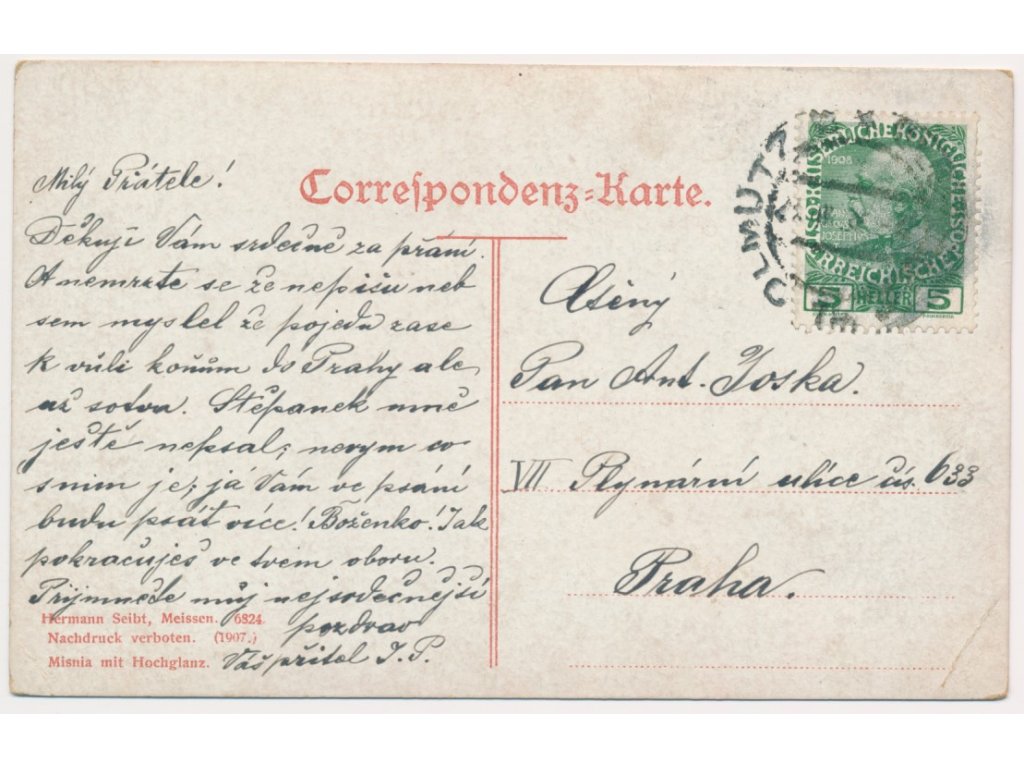 Correspondenz-Karte.
Milý Přátele!
Děkuji Vám srdečně za přání.
A nemrzte se že nepišu neb
sem myslel že pojedu zase
k vůli koňům do Prahy ale
až sotva. Štěpanek mně
ještě nepsal; nevym co
snim je; já Vám ve psání
budu psát více! Boženko! Jak
pokračuješ ve tvém oboru.
Přijmněte můj nejsrdečnější
pozdrav
Váš přítel J. P.
Hermann Seibt, Meissen. 6824.
Nachdruck verboten. (1907.)
Misnia mit Hochglanz.
OLMUTZ
1908
5 HELLER 5
Ctěný
Pan Ant. Joska.
VII Plynární ulice čís. 633
Praha.